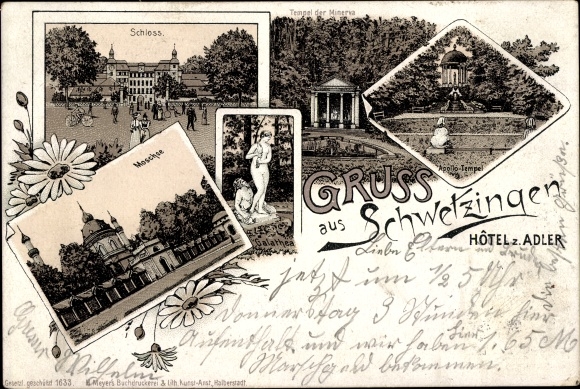 Schloss.
Tempel der Minerva
Apollo-Tempel
Moschee
Galathea
GRUSS
aus Schwetzingen
HÔTEL z. ADLER
Liebe Eltern
jetzt um 1/2 5 Uhr
Donnerstag 3 Stunden hier
Aufenthalt und wir haben 1.65 M
Marschgeld bekommen.
Wilhelm
Gesetzl. geschützt 1633
Meyer's Buchdruckerei & lith. Kunst-Anst., Halberstadt